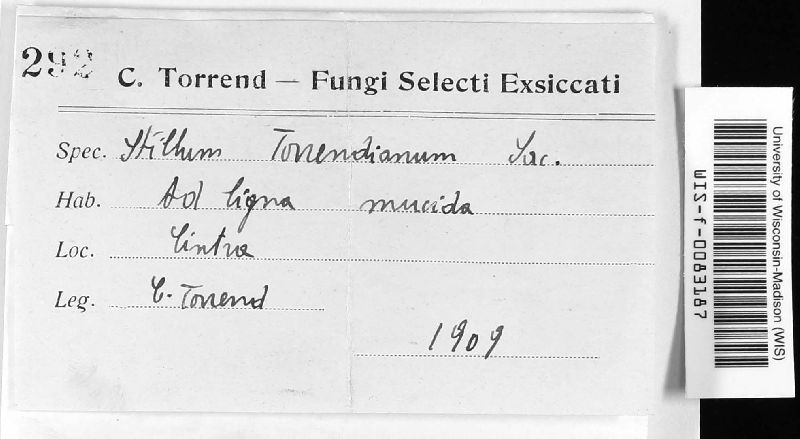 292 C. Torrend — Fungi Selecti Exsiccati
Spec. Stilbum Torrendianum Sac.
Hab. Ad ligna mucida
Loc. Cintra
Leg. C. Torrend
1909
University of Wisconsin-Madison (WIS)
WIS-f-0083187